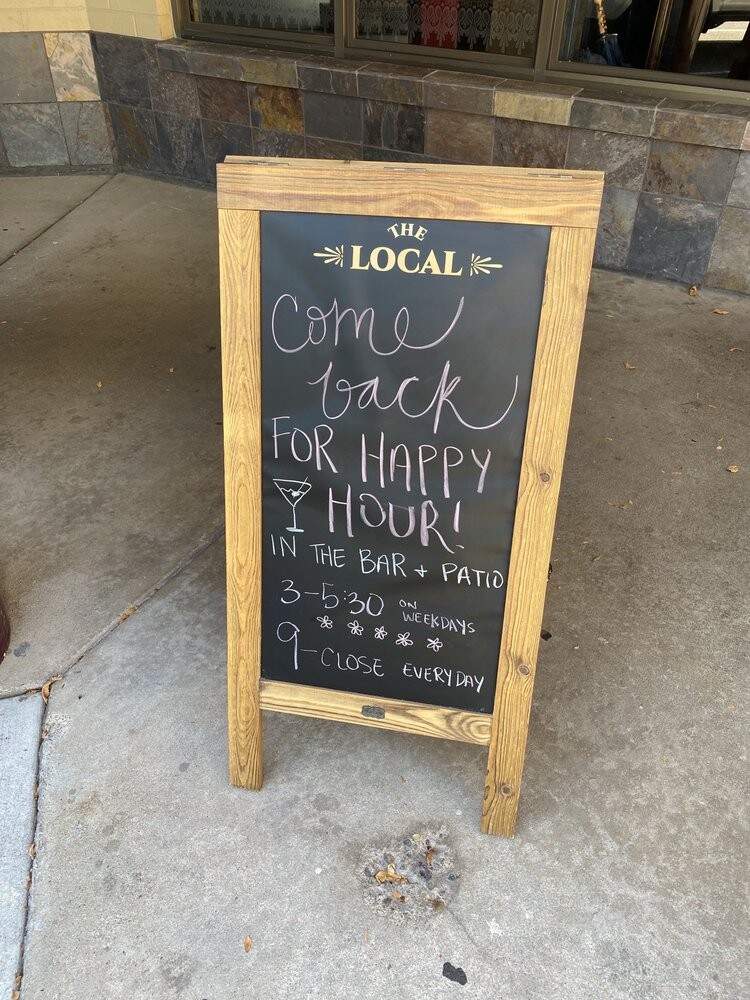 THE
LOCAL
Come
back
FOR HAPPY
HOUR!
IN THE BAR + PATIO
3-5:30 ON WEEKDAYS
9-CLOSE EVERYDAY